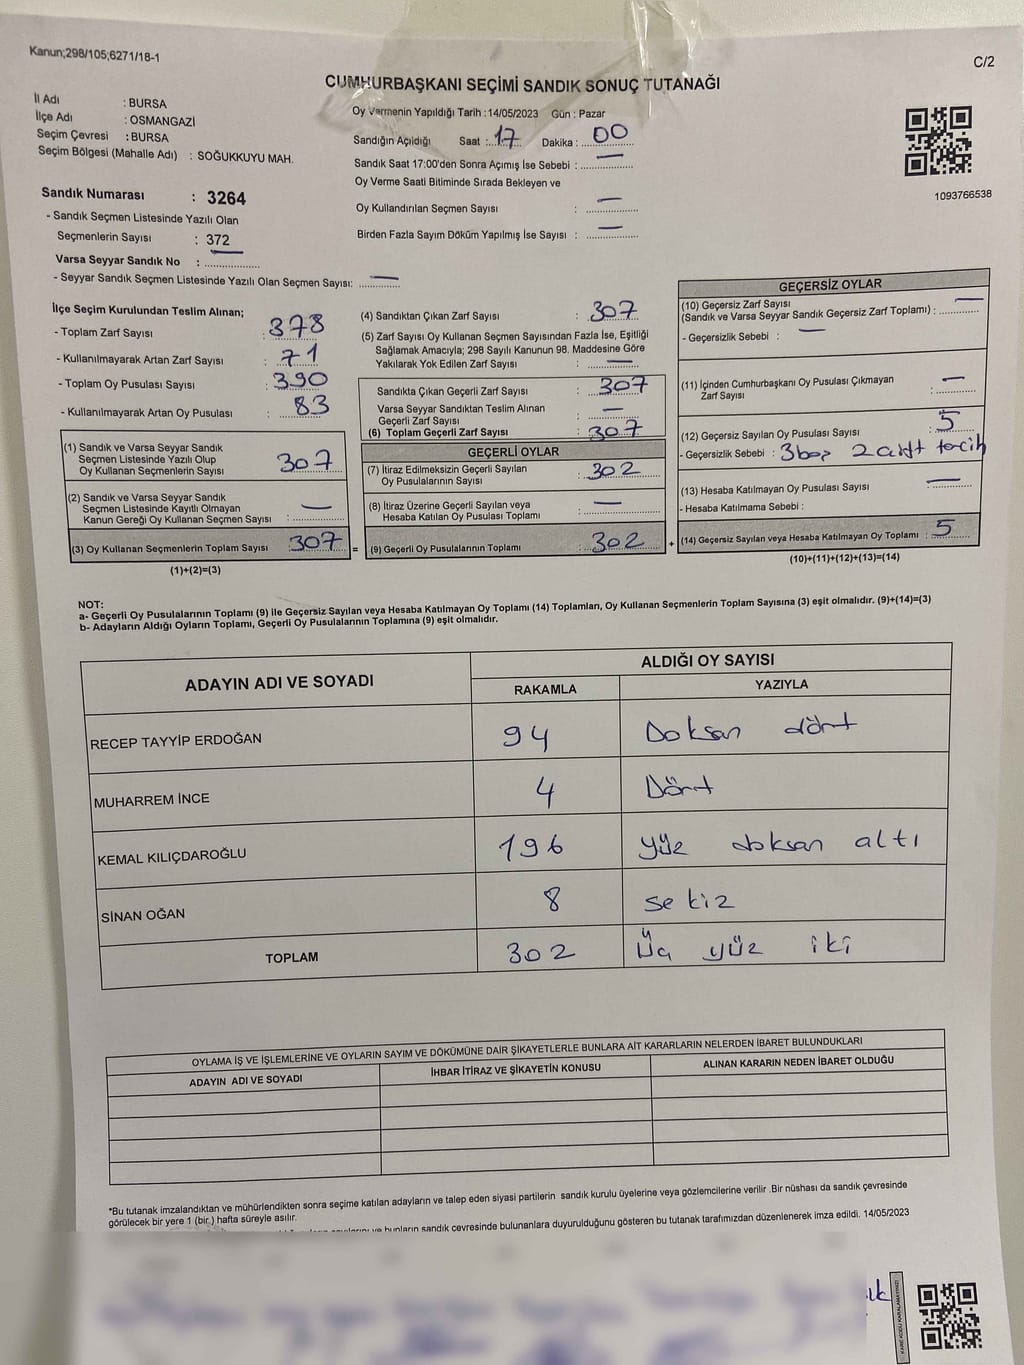 Kanun;298/105;6271/18-1
C/2
CUMHURBAŞKANI SEÇİMİ SANDIK SONUÇ TUTANAĞI
İl Adı : BURSA
İlçe Adı : OSMANGAZİ
Seçim Çevresi : BURSA
Seçim Bölgesi (Mahalle Adı) : SOĞUKKUYU MAH.
Oy Vermenin Yapıldığı Tarih : 14/05/2023 Gün : Pazar
Sandığın Açıldığı Saat : 17 Dakika : 00
Sandık Saat 17:00'den Sonra Açımış İse Sebebi : —
Oy Verme Saati Bitiminde Sırada Bekleyen ve
Oy Kullandırılan Seçmen Sayısı : —
Birden Fazla Sayım Döküm Yapılmış İse Sayısı : —
1093766538
Sandık Numarası : 3264
- Sandık Seçmen Listesinde Yazılı Olan
Seçmenlerin Sayısı : 372
Varsa Seyyar Sandık No : —
- Seyyar Sandık Seçmen Listesinde Yazılı Olan Seçmen Sayısı: —
İlçe Seçim Kurulundan Teslim Alınan;
- Toplam Zarf Sayısı : 378
- Kullanılmayarak Artan Zarf Sayısı : 71
- Toplam Oy Pusulası Sayısı : 390
- Kullanılmayarak Artan Oy Pusulası : 83
(1) Sandık ve Varsa Seyyar Sandık
Seçmen Listesinde Yazılı Olup
Oy Kullanan Seçmenlerin Sayısı 307
(2) Sandık ve Varsa Seyyar Sandık
Seçmen Listesinde Kayıtlı Olmayan
Kanun Gereği Oy Kullanan Seçmen Sayısı : —
(3) Oy Kullanan Seçmenlerin Toplam Sayısı 307 =
(1)+(2)=(3)
(4) Sandıktan Çıkan Zarf Sayısı : 307
(5) Zarf Sayısı Oy Kullanan Seçmen Sayısından Fazla İse, Eşitliği
Sağlamak Amacıyla; 298 Sayılı Kanunun 98. Maddesine Göre
Yakılarak Yok Edilen Zarf Sayısı : —
Sandıkta Çıkan Geçerli Zarf Sayısı : 307
Varsa Seyyar Sandıktan Teslim Alınan
Geçerli Zarf Sayısı : —
(6) Toplam Geçerli Zarf Sayısı : 307
GEÇERLİ OYLAR
(7) İtiraz Edilmeksizin Geçerli Sayılan
Oy Pusulalarının Sayısı : 302
(8) İtiraz Üzerine Geçerli Sayılan veya
Hesaba Katılan Oy Pusulası Toplamı : —
(9) Geçerli Oy Pusulalarının Toplamı : 302 +
GEÇERSİZ OYLAR
(10) Geçersiz Zarf Sayısı
(Sandık ve Varsa Seyyar Sandık Geçersiz Zarf Toplamı) : —
- Geçersizlik Sebebi : —
(11) İçinden Cumhurbaşkanı Oy Pusulası Çıkmayan
Zarf Sayısı : —
(12) Geçersiz Sayılan Oy Pusulası Sayısı : 5
- Geçersizlik Sebebi : 3 boş 2 çift tercih
(13) Hesaba Katılmayan Oy Pusulası Sayısı : —
- Hesaba Katılmama Sebebi :
(14) Geçersiz Sayılan veya Hesaba Katılmayan Oy Toplamı : 5
(10)+(11)+(12)+(13)=(14)
NOT:
a- Geçerli Oy Pusulalarının Toplamı (9) ile Geçersiz Sayılan veya Hesaba Katılmayan Oy Toplamı (14) Toplamları, Oy Kullanan Seçmenlerin Toplam Sayısına (3) eşit olmalıdır. (9)+(14)=(3)
b- Adayların Aldığı Oyların Toplamı, Geçerli Oy Pusulalarının Toplamına (9) eşit olmalıdır.
ADAYIN ADI VE SOYADI ALDIĞI OY SAYISI
RAKAMLA YAZIYLA
RECEP TAYYİP ERDOĞAN 94 Doksan dört
MUHARREM İNCE 4 Dört
KEMAL KILIÇDAROĞLU 196 yüz doksan altı
SİNAN OĞAN 8 sekiz
TOPLAM 302 Üç yüz iki
OYLAMA İŞ VE İŞLEMLERİNE VE OYLARIN SAYIM VE DÖKÜMÜNE DAİR ŞİKAYETLERLE BUNLARA AİT KARARLARIN NELERDEN İBARET BULUNDUKLARI
ADAYIN ADI VE SOYADI İHBAR İTİRAZ VE ŞİKAYETİN KONUSU ALINAN KARARIN NEDEN İBARET OLDUĞU
*Bu tutanak imzalandıktan ve mühürlendikten sonra seçime katılan adayların ve talep eden siyasi partilerin sandık kurulu üyelerine veya gözlemcilerine verilir .Bir nüshası da sandık çevresinde
görülecek bir yere 1 (bir ) hafta süreyle asılır.
ve bunların sandık çevresinde bulunanlara duyurulduğunu gösteren bu tutanak tarafımızdan düzenlenerek imza edildi. 14/05/2023